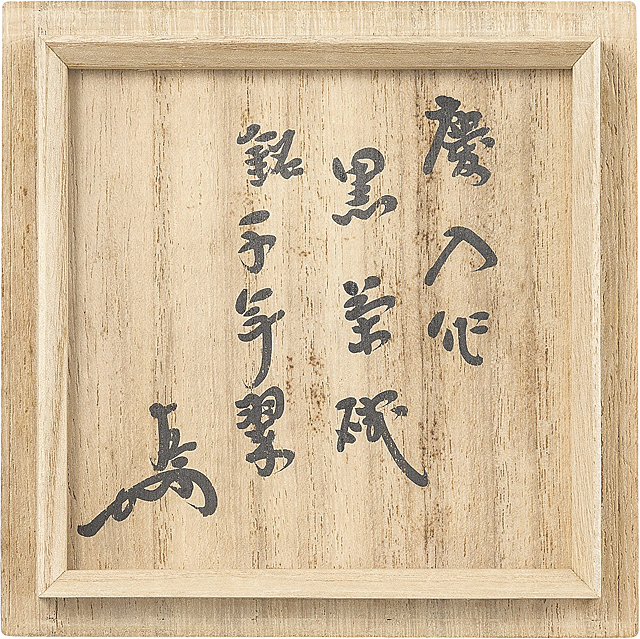 慶入作
黒茶碗
銘 千年翠